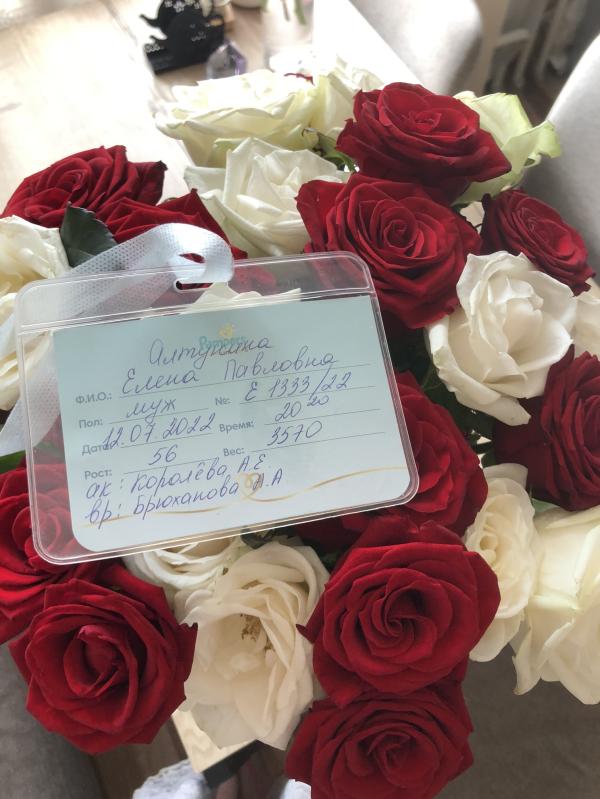 Pampers
Алтунина
Ф.И.О.: Елена Павловна
Пол: муж №: Е 1333/22
Дата: 12.07.2022 Время: 20 20
Рост: 56 Вес: 3570
ак: Королёва А.Е
вр: Брюханова А.А